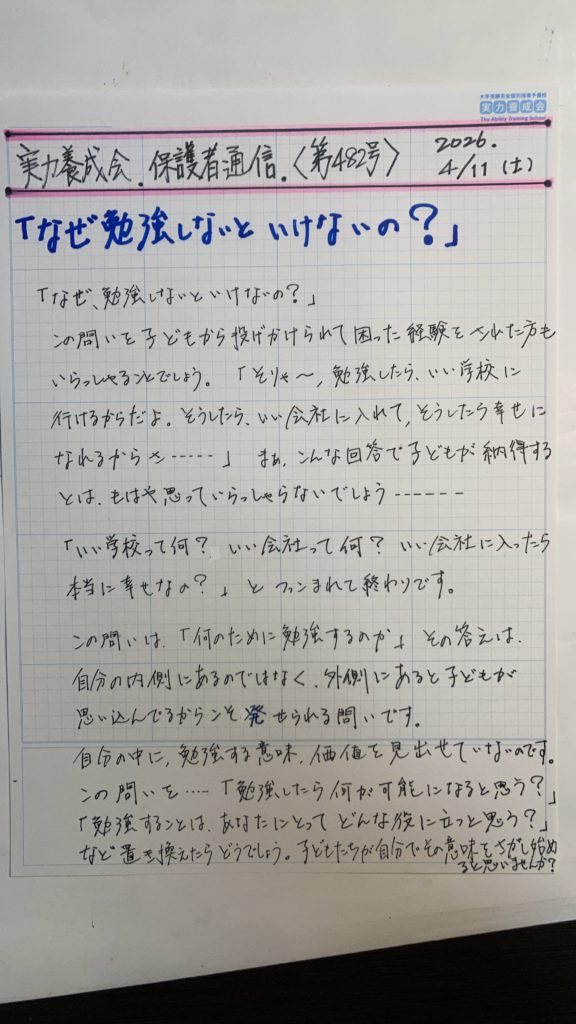 大学受験完全個別指導予備校
実力養成会
The Ability Training School
実力養成会.保護者通信.〈第482号〉
2026.
4/11(土)
「なぜ勉強しないといけないの?」
「なぜ、勉強しないといけないの?」
この問いを子どもから投げかけられて困った経験をされた方も
いらっしゃることでしょう。「そりゃ〜,勉強したら、いい学校に
行けるからだよ。そうしたら、いい会社に入れて,そうしたら幸せに
なれるからさ-----」まぁ、こんな回答で子どもが納得する
とは、もはや思っていらっしゃらないでしょう-------
「いい学校って何?いい会社って何?いい会社に入ったら
本当に幸せなの?」とツッこまれて終わりです。
この問いは、「何のために勉強するのか」その答えは、
自分の内側にあるのではなく、外側にあると子どもが
思い込んでるからこそ発せられる問いです。
自分の中に,勉強する意味,価値を見出せていないのです。
この問いを.....「勉強したら何が可能になると思う?」
「勉強することは、あなたにとってどんな役に立つと思う?」
など置き換えたらどうでしょう。子どもたちが自分でその意味をさがし始め
ると思いませんか?